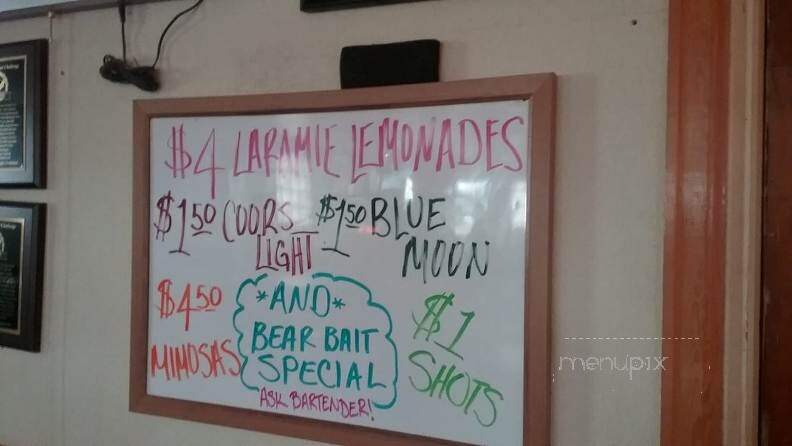 $4 LARAMIE LEMONADES
$1.50 COORS LIGHT
$1.50 BLUE MOON
$4.50 MIMOSAS
*AND*
BEAR BAIT
SPECIAL
ASK BARTENDER!
$1
SHOTS
menupix